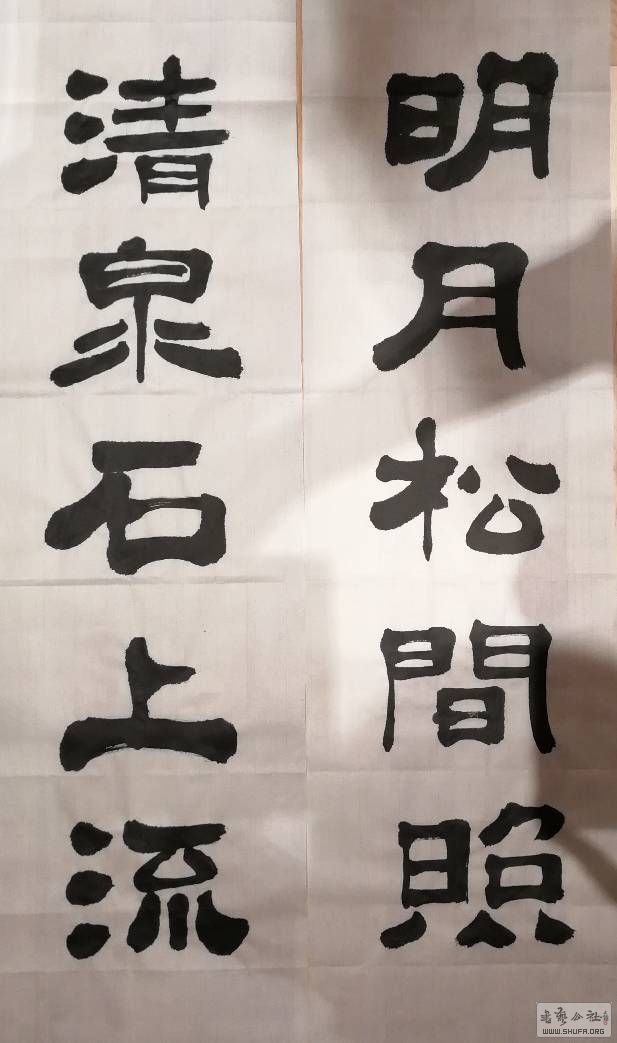 明月松間照
清泉石上流
書藝公社
WWW.SHUFA.ORG